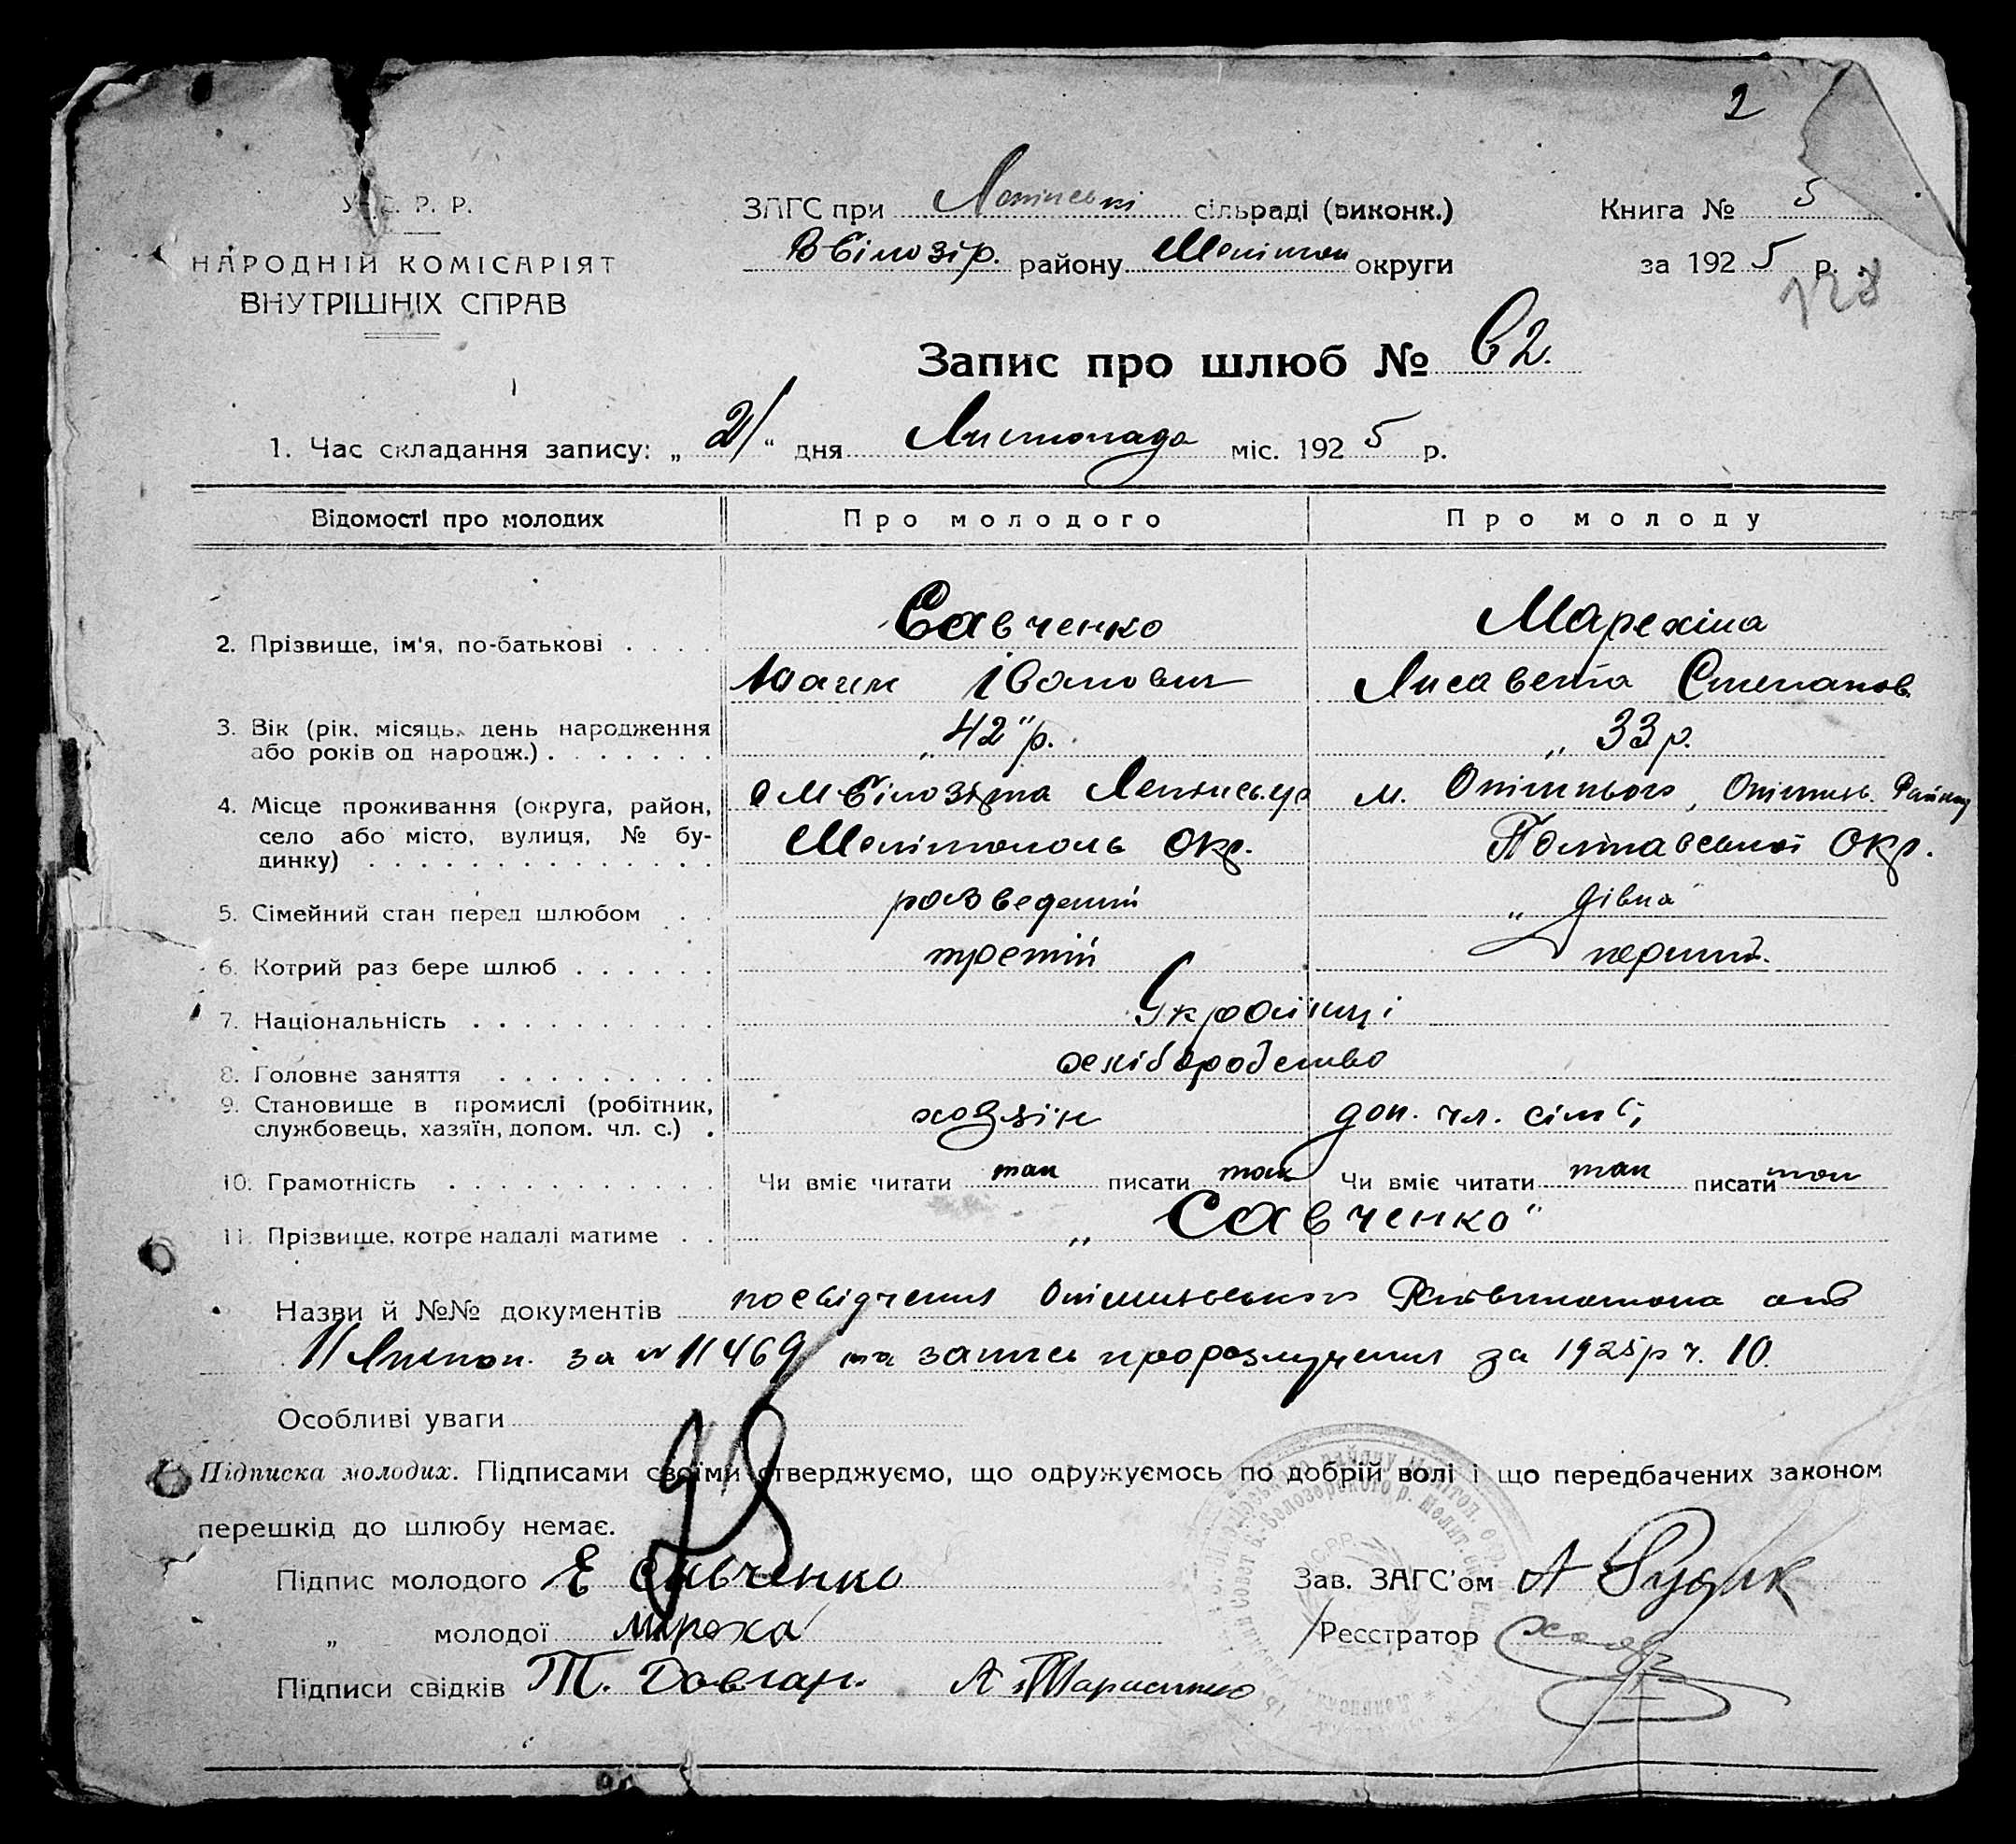 2
У.С.Р.Р.
НАРОДНІЙ КОМІСАРІЯТ
ВНУТРІШНІХ СПРАВ
ЗАГС при сільраді (виконк.)
В Білозір. району Мелітоп округи
Книга № 5
за 1925 р.
128
Запис про шлюб № 62.
1. Час складання запису: „21“ дня Листопада міс. 1925 р.
Відомості про молодих Про молодого Про молоду
2. Прізвище, ім'я, по-батькові Савченко Марехіна
Іванович Лисавета Степанов.
3. Вік (рік, місяць, день народження „42" р. „ 33 р.
або років од народж.)
4. Місце проживання (округа, район, Білозірка м. Опішнього, Опішнь. Району
село або місто, вулиця, № бу- Мелітополь Окр. Полтавської Окр.
динку)
5. Сімейний стан перед шлюбом розведений „ дівка
6. Котрий раз бере шлюб третій перший.
7. Національність Українці
8. Головне заняття хліборобство
9. Становище в промислі (робітник, хозяін доп. чл. сімї
службовець, хазяїн, допом. чл. с.)
10. Грамотність Чи вміє читати так писати так Чи вміє читати так писати так
11. Прізвище, котре надалі матиме „Савченко“
Назви й №№ документів посвідчення Опішнянського Райвиконкома від
11 Листоп. за № 11469 та запись про розлучення за 1925 р ч. 10.
Особливі уваги
Підписка молодих. Підписами своїми стверджуємо, що одружуємось по добрій волі і що передбачених законом
перешкід до шлюбу немає.
Підпис молодого Е Савченко
„ молодої Мареха
Підписи свідків Т. Довган. А Тарасенко
Зав. ЗАГС'ом А Рудик
Реєстратор